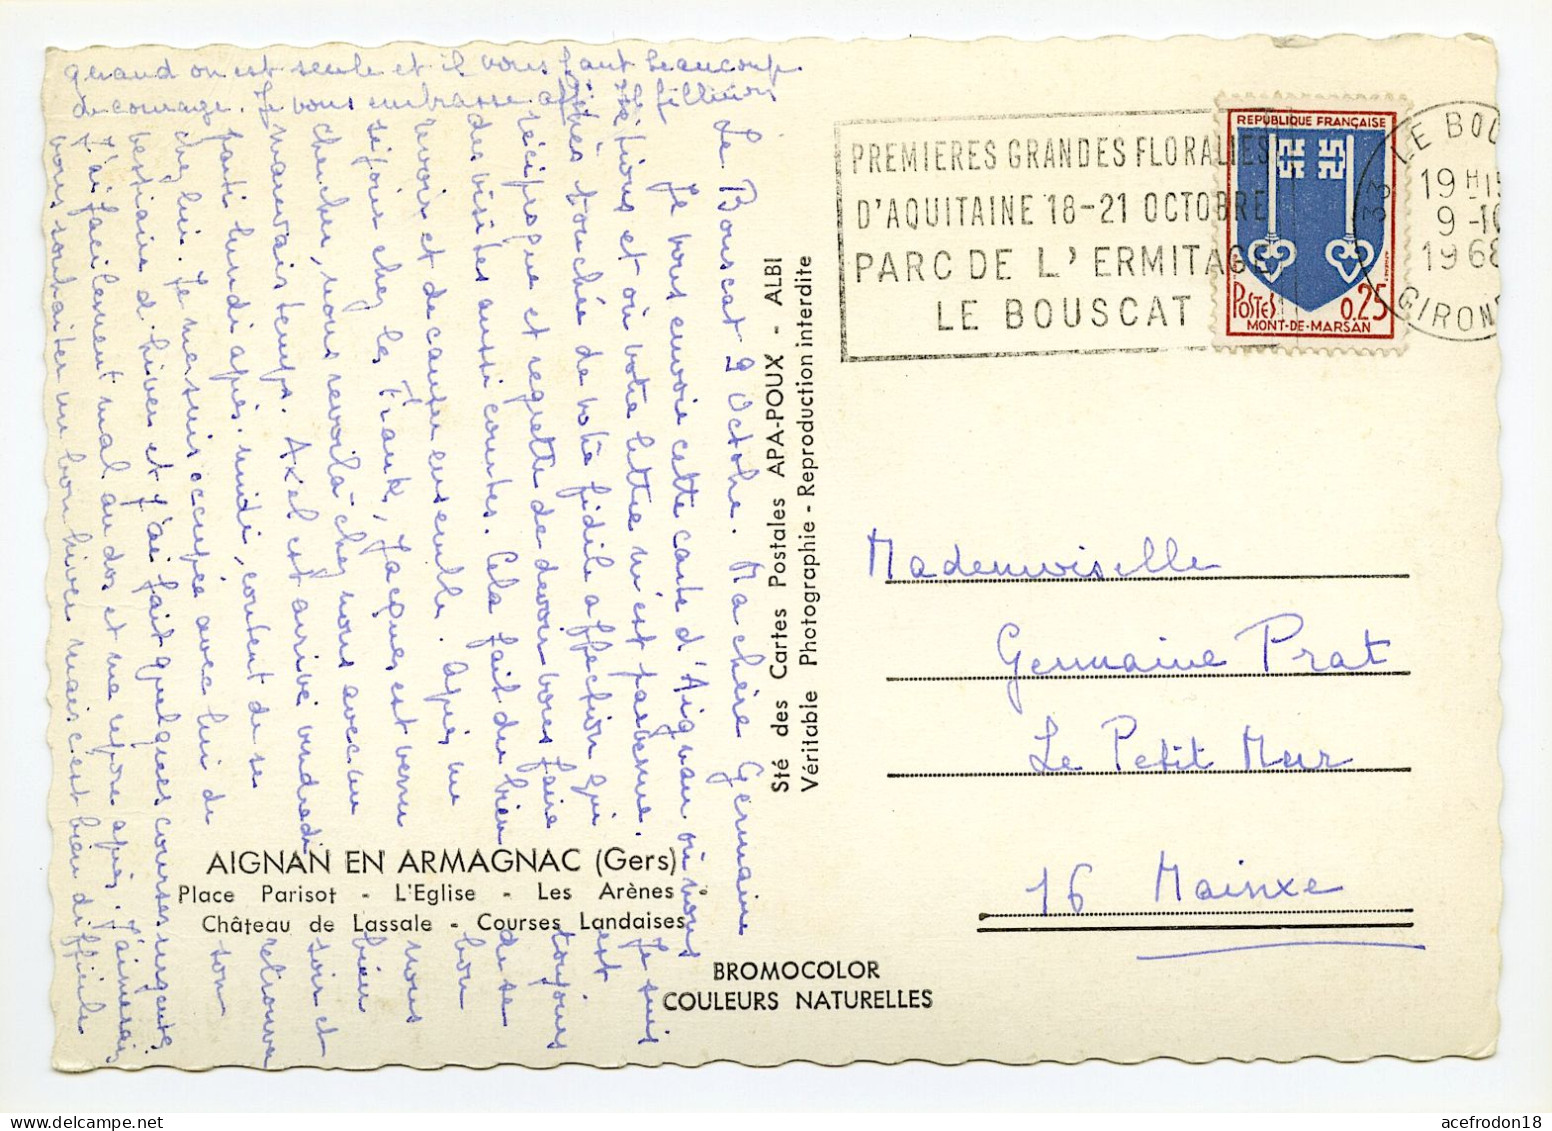 Le Bouscat 9 Octobre. Ma chère Germaine
Je vous envoie cette carte d'Aignan où nous
étions et où votre lettre m'est parvenue. Je suis
très touchée de votre fidèle affection qui est
réciproque et regrette de devoir vous faire toujours
des visites aussi courtes. Cela fait du bien de se
revoir et de causer ensemble. Après un bon
séjour chez les Frank, Jacques est venu nous
chercher, nous revoilà chez nous avec un bien
mauvais temps. Axel est arrivé vendredi soir et
parti lundi après-midi, content de se retrouver
chez lui. Je me suis occupée avec lui de son
vestiaire d'hiver et j'ai fait quelques courses urgentes
J'ai facilement mal au dos et me repose après. J'aimerais
vous souhaiter un bon hiver mais c'est bien difficile
quand on est seule et il vous faut beaucoup
de courage. Je vous embrasse
PREMIERES GRANDES FLORALIES
D'AQUITAINE 18-21 OCTOBRE
PARC DE L'ERMITAGE
LE BOUSCAT
REPUBLIQUE FRANÇAISE
POSTES 0,25
MONT-DE-MARSAN
33 LE BOU
19 H 15
9-10
1968
GIRON
Sté des Cartes Postales APA-POUX - ALBI
Véritable Photographie - Reproduction interdite
Mademoiselle
Germaine Prat
Le Petit Mur
16 Mainxe
AIGNAN EN ARMAGNAC (Gers)
Place Parisot - L'Eglise - Les Arènes
Château de Lassale - Courses Landaises
BROMOCOLOR
COULEURS NATURELLES
acefrodon18